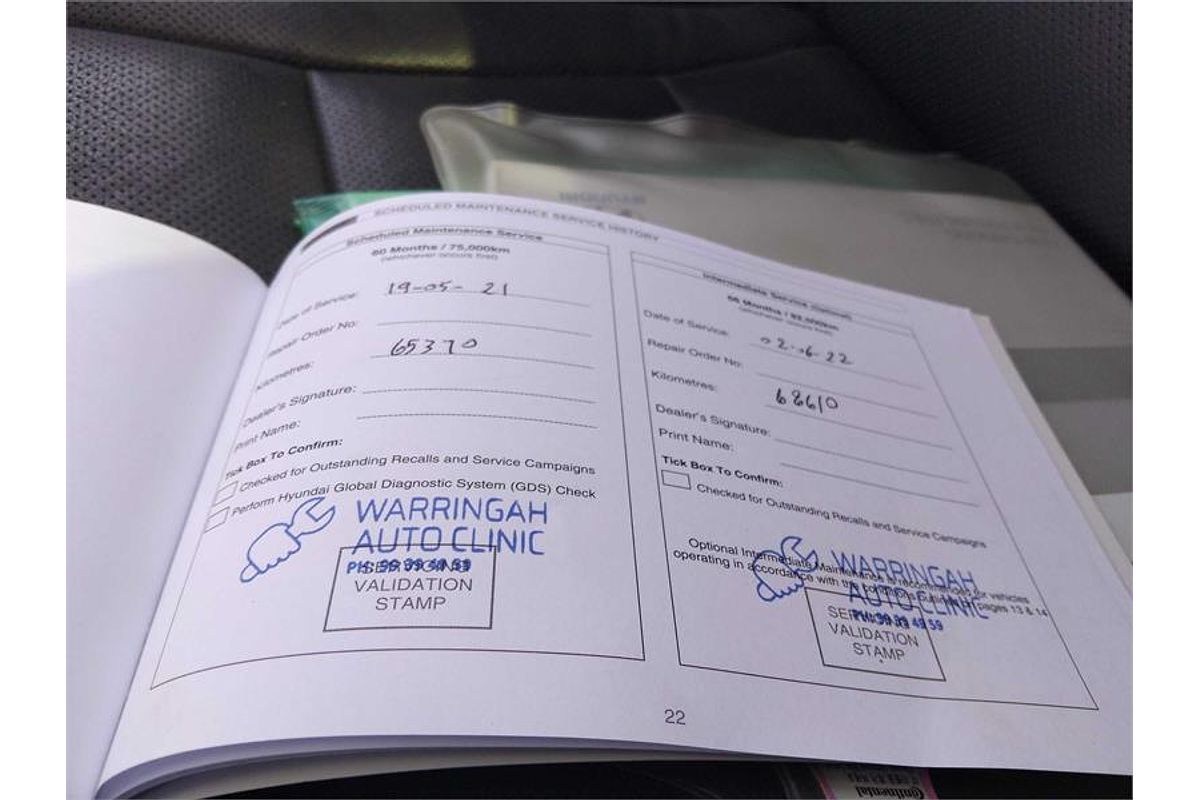 SCHEDULED MAINTENANCE SERVICE HISTORY
Scheduled Maintenance Service
60 Months / 75,000km
(whichever occurs first)
Date of Service: 19-05-21
Repair Order No:
Kilometres: 65370
Dealer's Signature:
Print Name:
Tick Box To Confirm:
Checked for Outstanding Recalls and Service Campaigns
Perform Hyundai Global Diagnostic System (GDS) Check
WARRINGAH
AUTO CLINIC
PH: 99 39 49 59
SERVICING
VALIDATION
STAMP
Intermediate Service (optional)
Date of Service: 02.06.22
Repair Order No:
Kilometres: 68610
Dealer's Signature:
Print Name:
Tick Box To Confirm:
Checked for Outstanding Recalls and Service Campaigns
Optional Intermediate Maintenance is recommended for vehicles
operating in accordance with the conditions pages 13 & 14
WARRINGAH
AUTO CLINIC
PH: 99 39 49 59
SERVICING
VALIDATION
STAMP
22
Continental